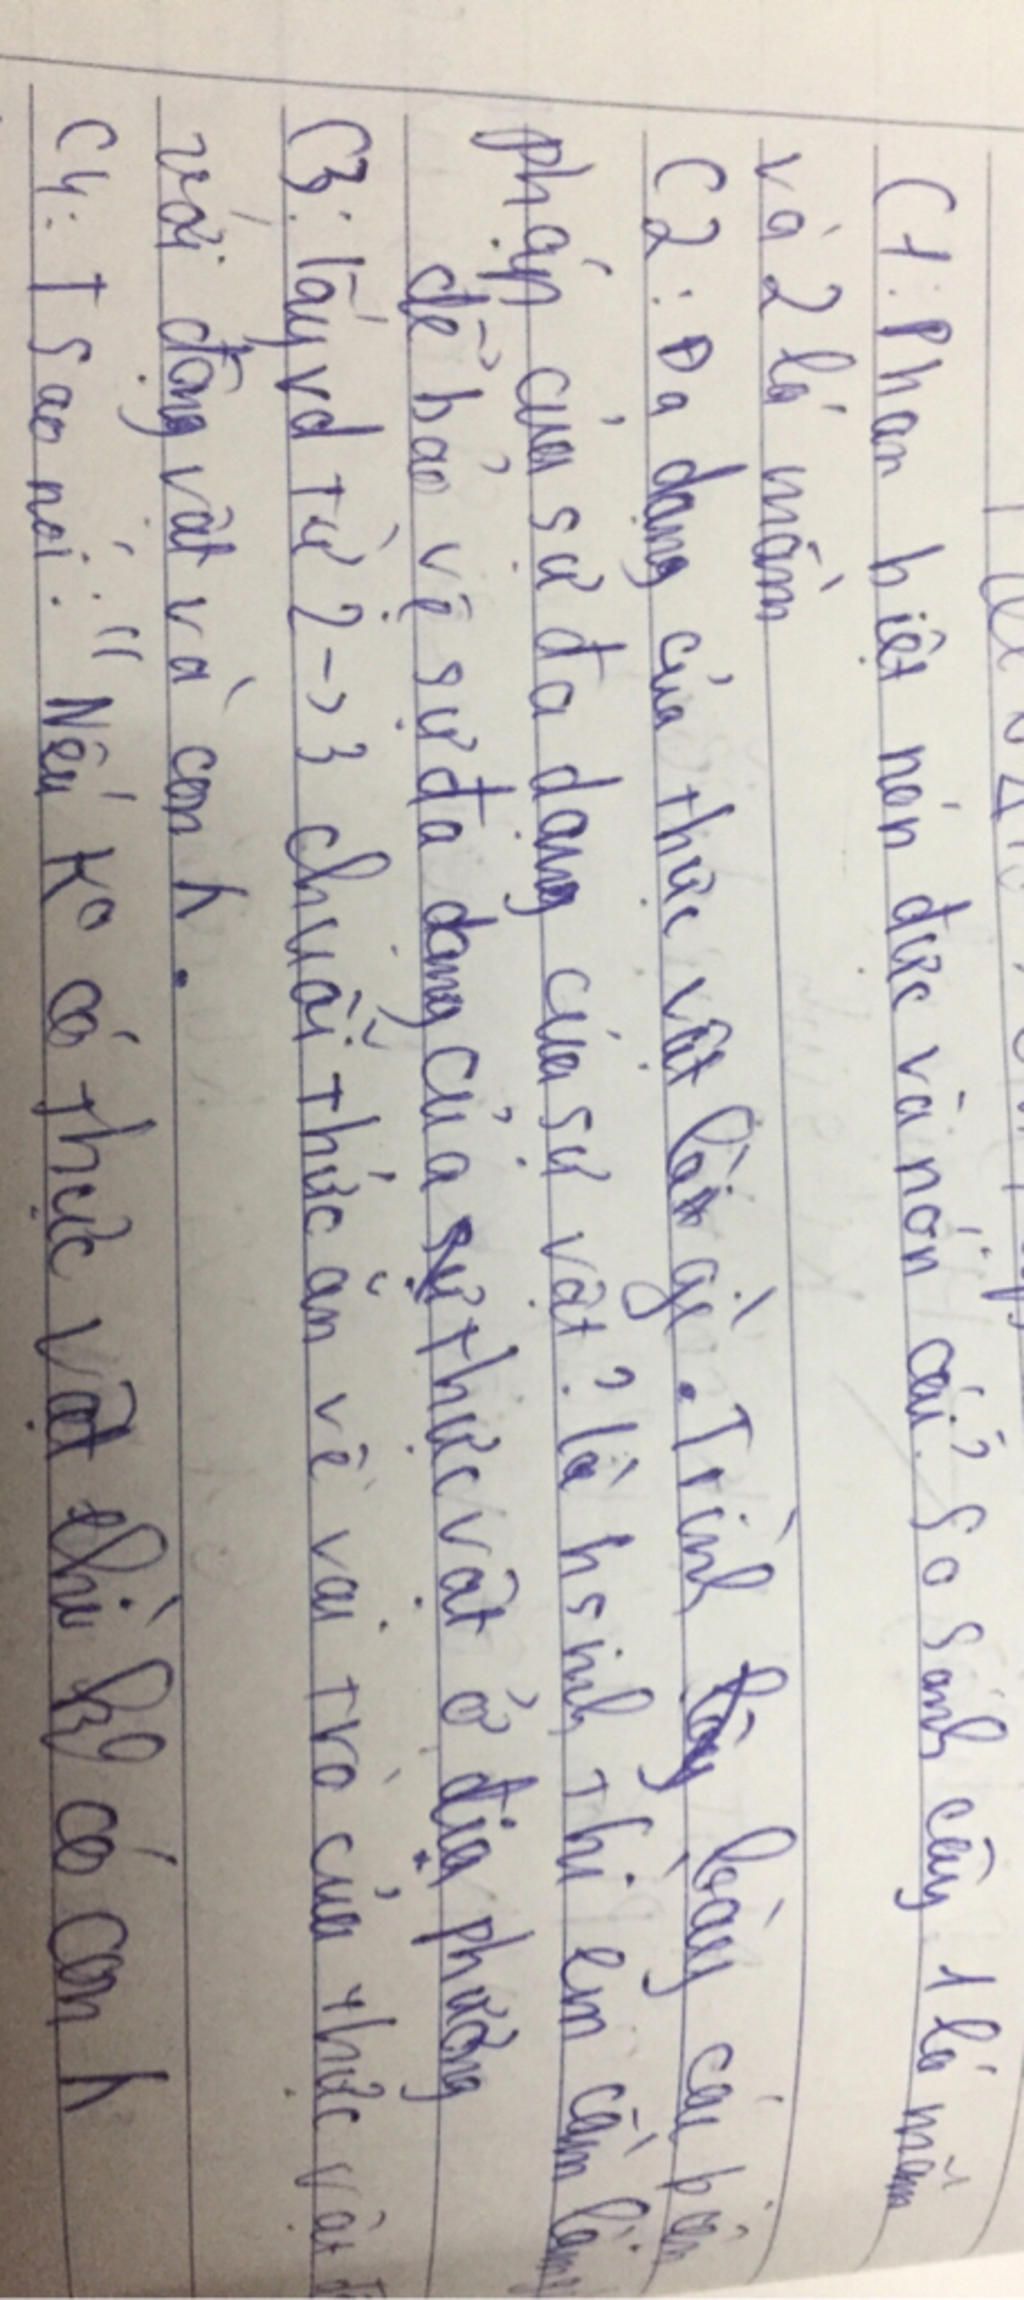 C1: Phân biệt nón đực và nón cái? So sánh cây 1 lá mầm
và 2 lá mầm
C2: Đa dạng của thực vật là gì. Trình bày các biện
pháp của sự đa dạng của sự vật? là hsinh thì em cần làm
để bảo vệ sự đa dạng của thực vật ở địa phương
C3: lấy vd từ 2->3 chuỗi thức ăn về vai trò của thực vật
với động vật và con ng.
C4: T sao nói: "Nếu ko có thực vật thì ko có con